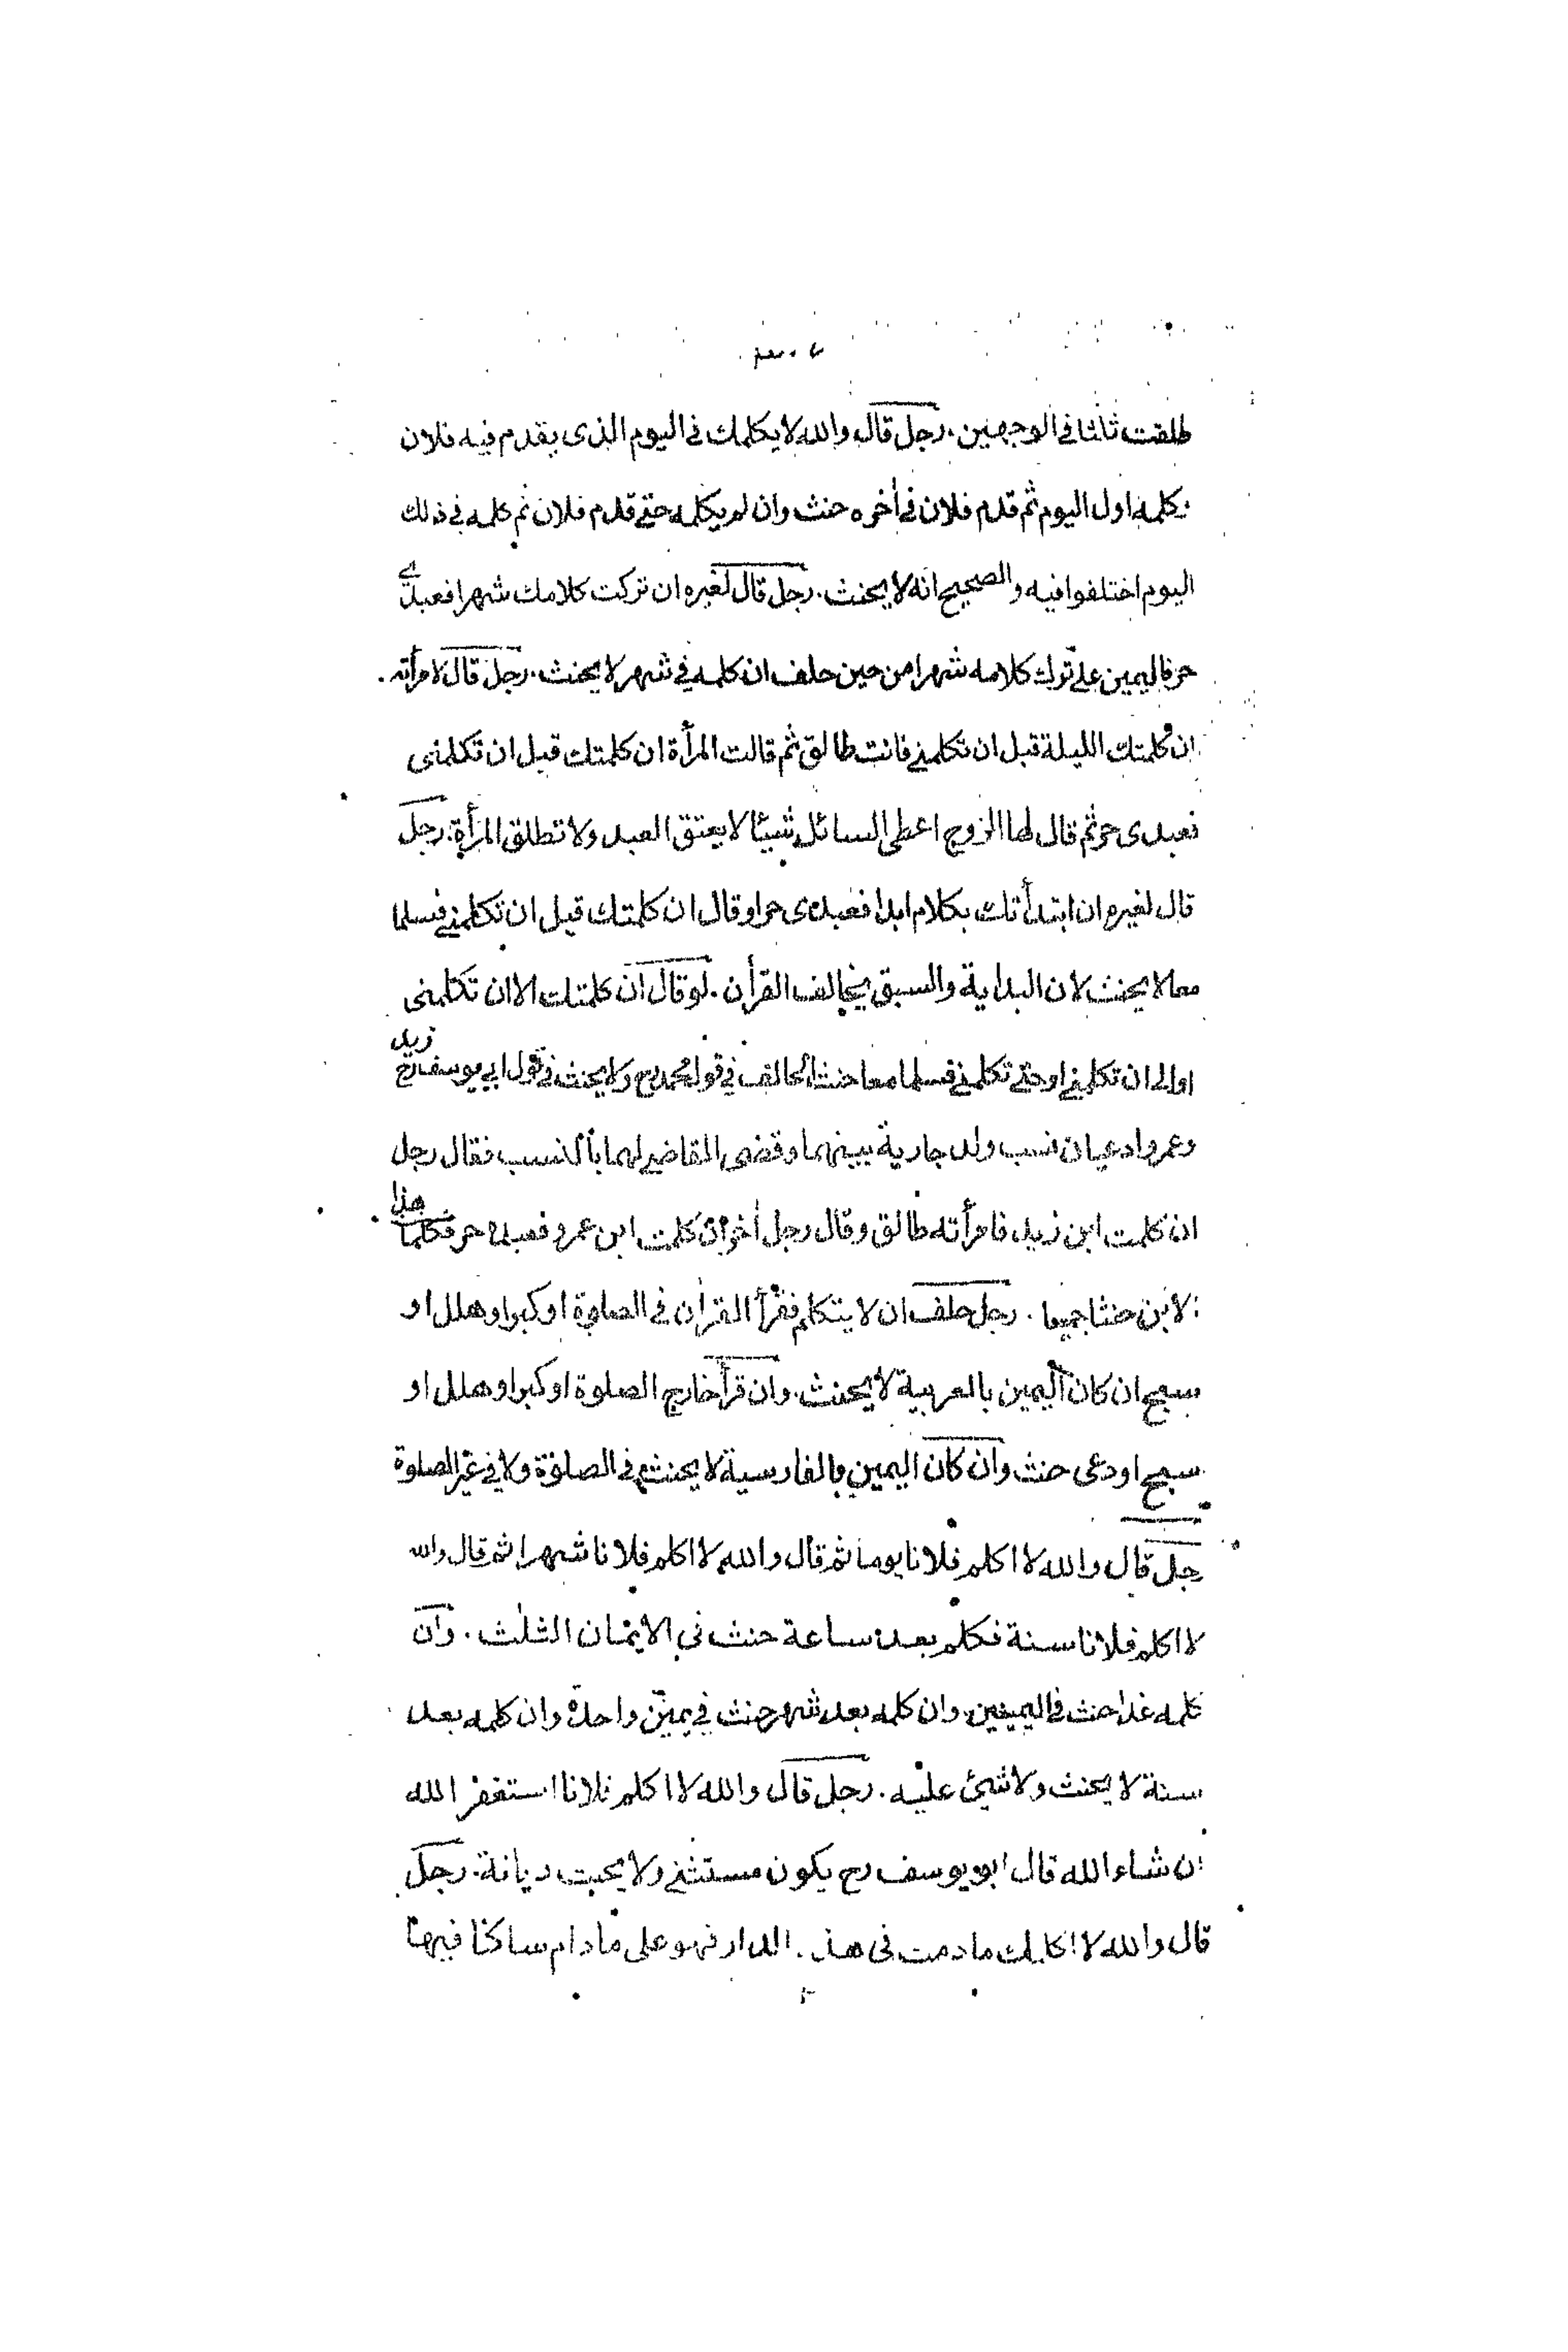 طلقت ثلثا في الوجهين. رجل قال والله لا يكلمك في اليوم الذى يقدم فيه فلان
فكلمه اول اليوم ثم قدم فلان في أخره حنث وان لم يكلمه حتى قدم فلان ثم كلمه في ذلك
اليوم اختلفوا فيه والصحيح انه لا يحنث. رجل قال لغيره ان تركت كلامك شهرا فعبدي
حر فاليمين على ترك كلامه شهرا من حين حلف ان كلمه في شهر لا يحنث. رجل قال لامرأته
ان كلمتك الليلة قبل ان تكلمني فانت طالق ثم قالت المرأة ان كلمتك قبل ان تكلمنى
فعبدى حر ثم قال لها الزوج اعطى السائل شيئا لا يعتق العبد ولا تطلق المرأة. رجل
قال لغيره ان ابتدأتك بكلام ابدا فعبدى حر او قال ان كلمتك قبل ان تكلمني فسلما
معا لا يحنث لان البداية والسبق يخالف القرأن. لو قال ان كلمتك الا ان تكلمنى
او الى ان تكلمني او حتى تكلمني فسلما معا حنث الحالف في قول محمد رح ولا يحنث في قول ابي يوسف رح زيد
وعمرو ادعيا ان نسب ولد جارية بينهما وقضى القاضي لهما بالنسب فقال رجل
ان كلمت ابن زيد فامرأته طالق وقال رجل أخر ان كلمت ابن عمرو فعبده حر فكلما هذا
الابن حنثا جميعا. رجل حلف ان لا يتكلم فقرأ القرأن في الصلوة او كبر او هلل او
سبح ان كان اليمين بالعربية لا يحنث. وان قرأ خارج الصلوة او كبر او هلل او
سبح او دعى حنث وان كان اليمين بالفارسية لا يحنث في الصلوة ولا في غير الصلوة
رجل قال والله لا اكلم فلانا يوما ثم قال والله لا اكلم فلانا شهرا ثم قال والله
لا اكلم فلانا سنة فكلم بعد ساعة حنث في الايمان الثلث. وان
كلمه غدا حنث في اليمينين وان كلمه بعد شهر حنث في يمين واحدة وان كلمه بعد
سنة لا يحنث ولا شيئ عليه. رجل قال والله لا اكلم فلانا استغفر الله
ان شاء الله قال ابو يوسف رح يكون مستثنى ولا يحنث ديانة. رجل
قال والله لا اكلمك ما دمت في هذه الدار فهو على ما دام ساكنا فيها